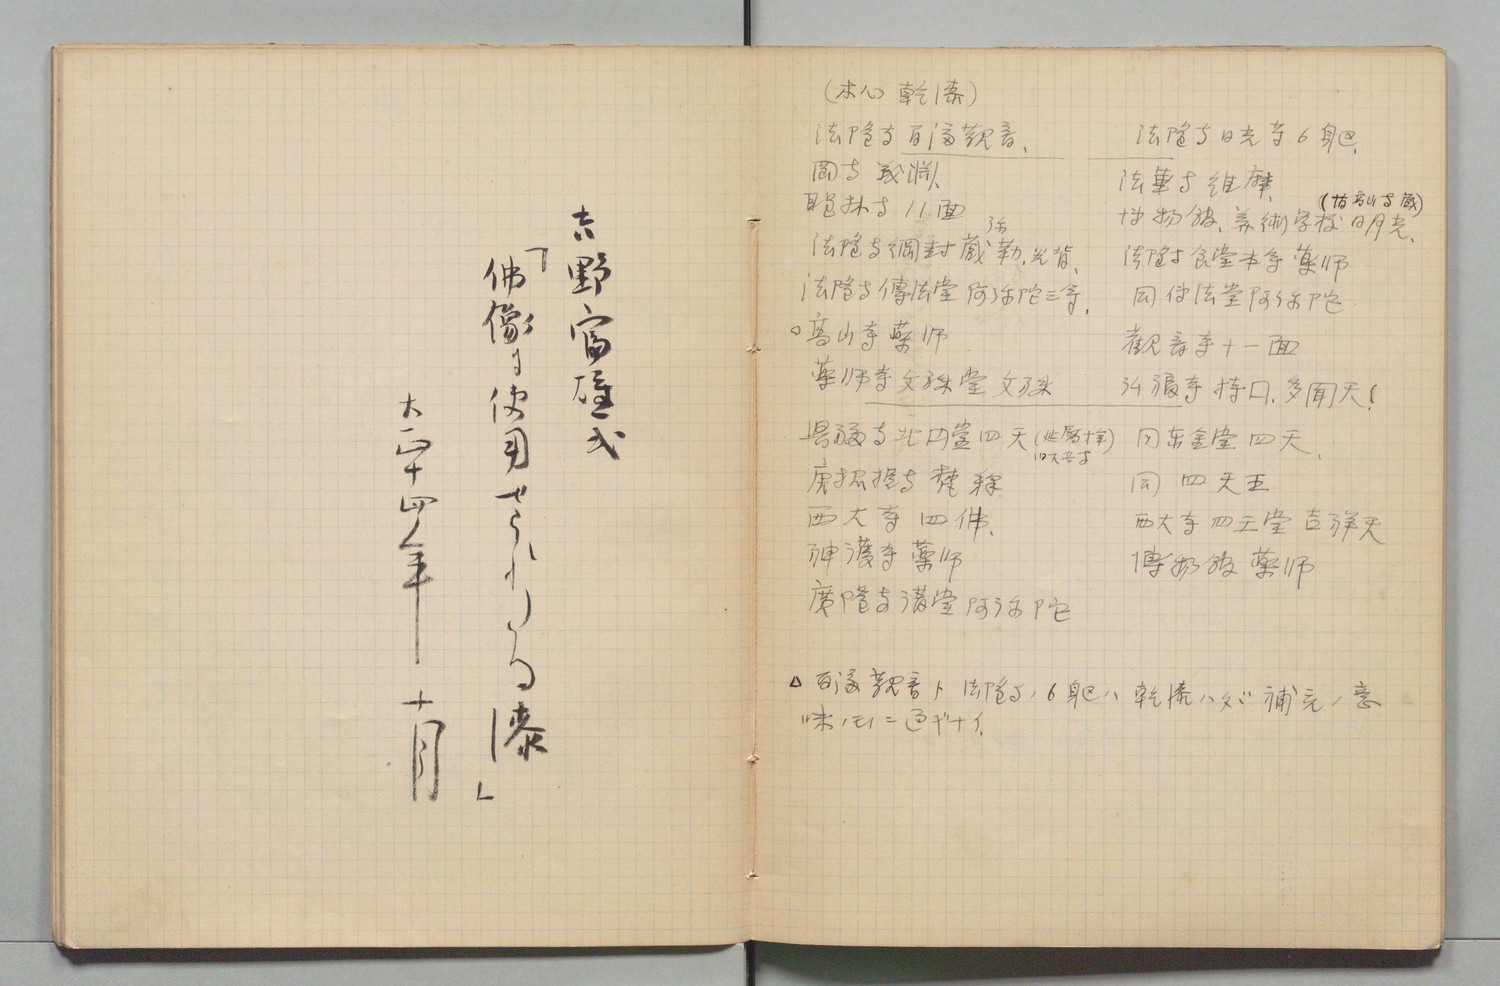 吉野富雄氏
「佛像に使用せられたる漆」
大正十四年十月
(木心乾漆)
法隆寺百済観音、
法隆寺日光等6躯、
岡寺義渊、
法華寺維摩、
聖林寺11面
博物館、美術学校日月光、
(旧高山寺蔵)
法隆寺綱封蔵弥勒、光背、
法隆寺食堂本尊薬師
法隆寺傳法堂阿弥陀三尊、
同伝法堂阿弥陀
○高山寺薬師
観音寺十一面
薬師寺文殊堂文殊
興福寺北円堂四天(延暦十年)
旧大安寺
同东金堂四天、
唐招提寺梵釋
同四天王
西大寺四佛、
西大寺四王堂吉祥天
神護寺薬師
博物館薬師
廣隆寺講堂阿弥陀
△百済観音ト法隆寺ノ6躯ハ乾漆ハタヾ補充ノ意
味ノモノニ過ギナイ、